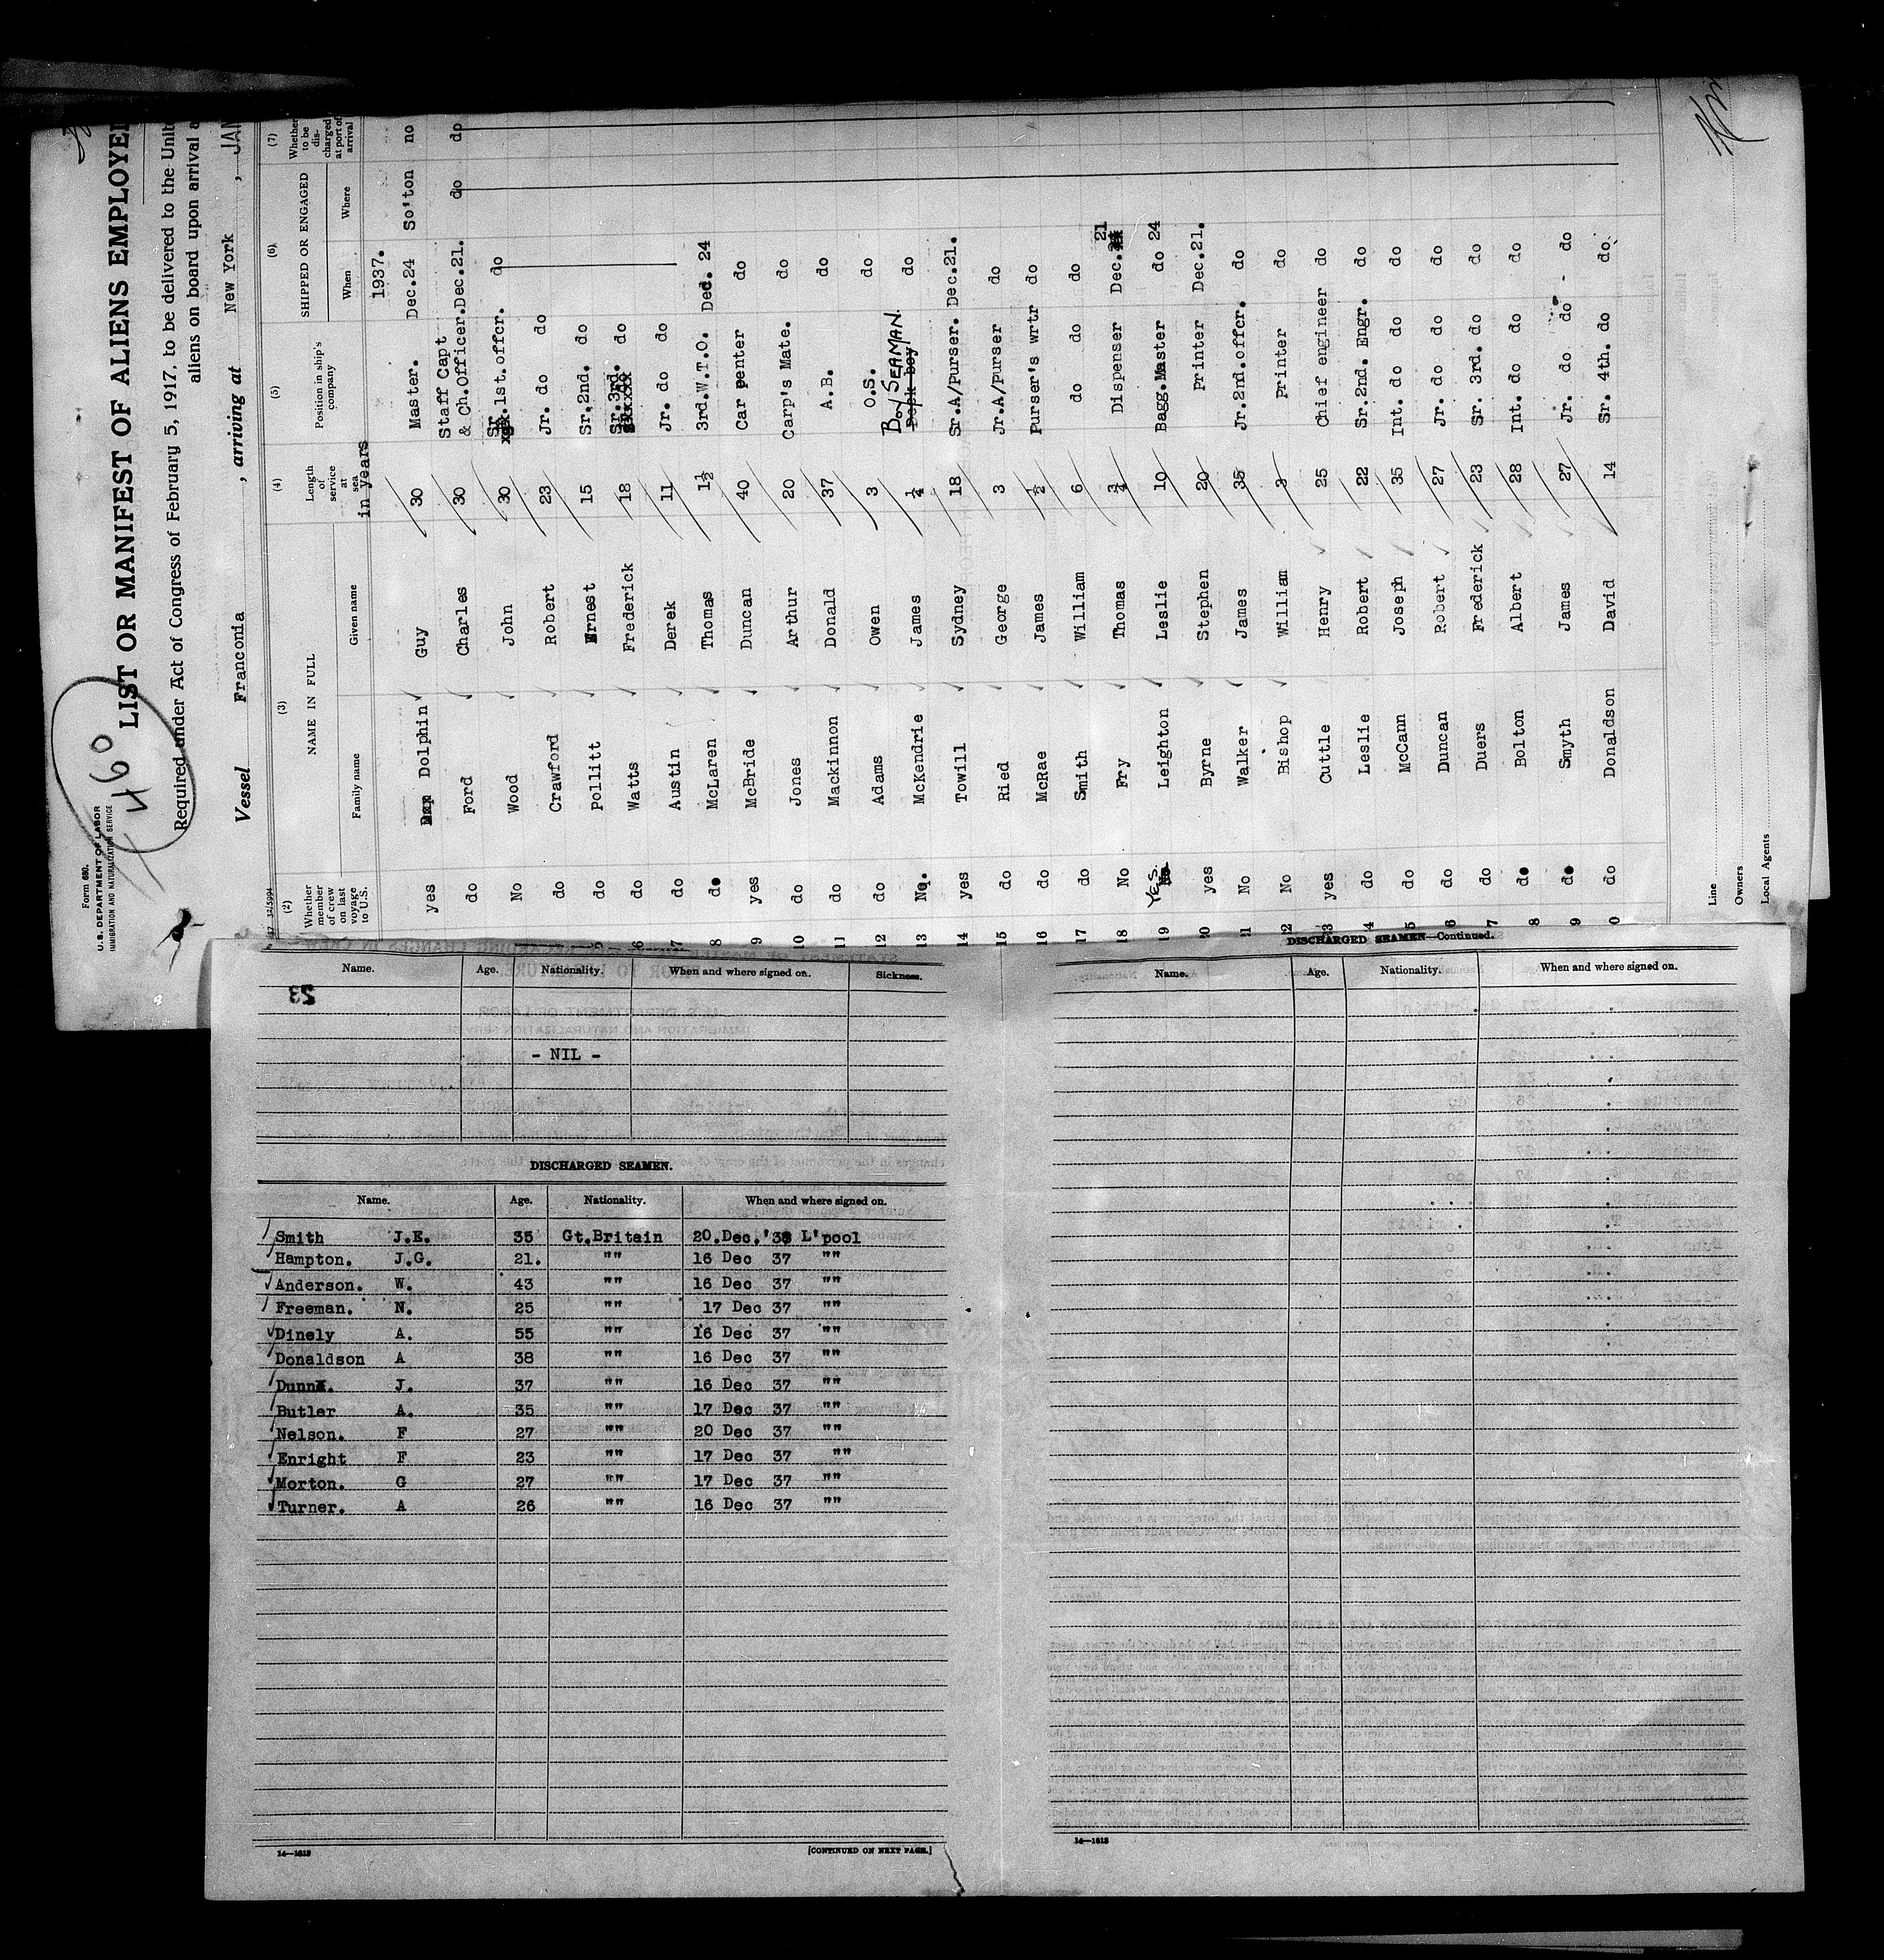 Form 680.
U. S. DEPARTMENT OF LABOR
IMMIGRATION AND NATURALIZATION SERVICE
460
LIST OR MANIFEST OF ALIENS EMPLOYE
Required under Act of Congress of February 5, 1917, to be delivered to the Unit
aliens on board upon arrival a
Vessel Franconia , arriving at New York , JAN
(2) (3) (4) (5) (6) (7)
Whether member of crew on last voyage to U.S. NAME IN FULL Length of service at sea Position in ship's company SHIPPED OR ENGAGED Whether to be dis-charged at port of arrival
Family name Given name in years When Where
1937.
yes Dolphin Guy 30 Master. Dec.24 So'ton no
do Ford Charles 30 Staff Capt & Ch.Officer. Dec.21. do do
No Wood John 30 Sr.1st.offcr. do
do Crawford Robert 23 Jr. do do
5 do Pollitt Ernest 15 Sr.2nd. do
6 do Watts Frederick 18 Sr.3rd. do
7 do Austin Derek 11 Jr. do do
8 do McLaren Thomas 1½ 3rd.W.T.O. Dec. 24
9 yes McBride Duncan 40 Car penter do
10 do Jones Arthur 20 Carp's Mate. do
11 do Mackinnon Donald 37 A.B. do
12 do Adams Owen 3 O.S. do
13 No. McKendrie James ¼ Deck boy BOY SEAMAN. do
14 yes Towill Sydney 18 Sr.A/Purser. Dec.21.
15 do Ried George 3 Jr.A/Purser do
16 do McRae James ½ Purser's wrtr do
17 do Smith William 6 do do do
18 No Fry Thomas ¾ Dispenser Dec. 21
19 YES. No Leighton Leslie 10 Bagg.Master do 24
20 yes Byrne Stephen 20 Printer Dec.21.
21 No Walker James 35 Jr.2nd.offcr. do
22 No Bishop William 3 Printer do
23 yes Cuttle Henry 25 Chief engineer do
4 do Leslie Robert 22 Sr.2nd. Engr. do
5 do McCann Joseph 35 Int. do do do
6 do Duncan Robert 27 Jr. do do do
7 do Duers Frederick 23 Sr. 3rd. do do
8 do Bolton Albert 28 Int. do do do
9 do Smyth James 27 Jr. do do - do
0 do Donaldson David 14 Sr. 4th. do do.
Line
Owners
Local Agents
Name. Age. Nationality. When and where signed on. Sickness.
23
- NIL -
DISCHARGED SEAMEN.
Name. Age. Nationality. When and where signed on.
Smith J.E. 35 Gt.Britain 20.Dec.'37 L'pool
Hampton. J.G. 21. "" 16 Dec 37 ""
Anderson. W. 43 "" 16 Dec 37 ""
Freeman. N. 25 "" 17 Dec 37 ""
Dinely A. 55 "" 16 Dec 37 ""
Donaldson A 38 "" 16 Dec 37 ""
Dunn. J. 37 "" 16 Dec 37 ""
Butler A. 35 "" 17 Dec 37 ""
Nelson. F 27 "" 20 Dec 37 ""
Enright F 23 "" 17 Dec 37 ""
Morton. G 27 "" 17 Dec 37 ""
Turner. A 26 "" 16 Dec 37 ""
14—1613
[CONTINUED ON NEXT PAGE.]
DISCHARGED SEAMEN—Continued.
Name. Age. Nationality. When and where signed on.
14—1613